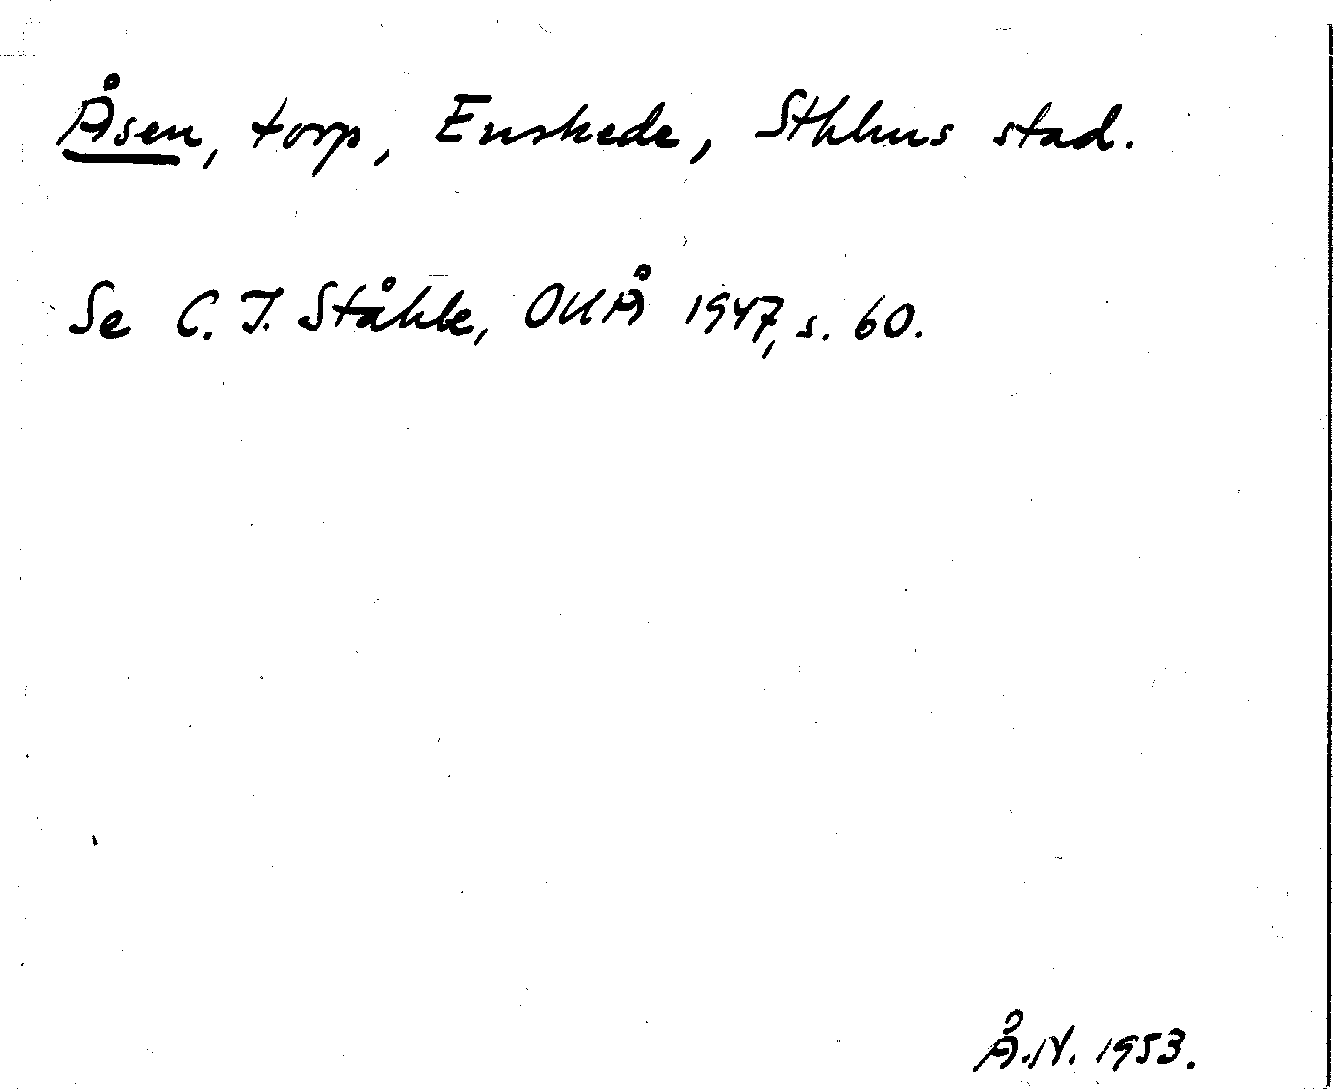 Åsen, torp, Enskede, Sthlms stad.
Se C. I. Ståhle, OUÅ 1947, s. 60.
Å.N. 1953.